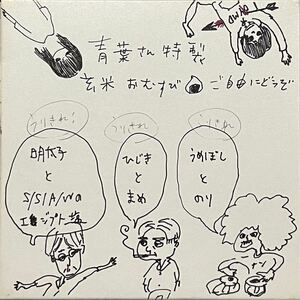 青葉さん特製
玄米おむすび ご自由にどうぞ
うりきれ!
うりきれ
うりきれ
明太子
と
S/S/A/W
エジプト塩
ひじき
と
まめ
うめぼし
と
のり